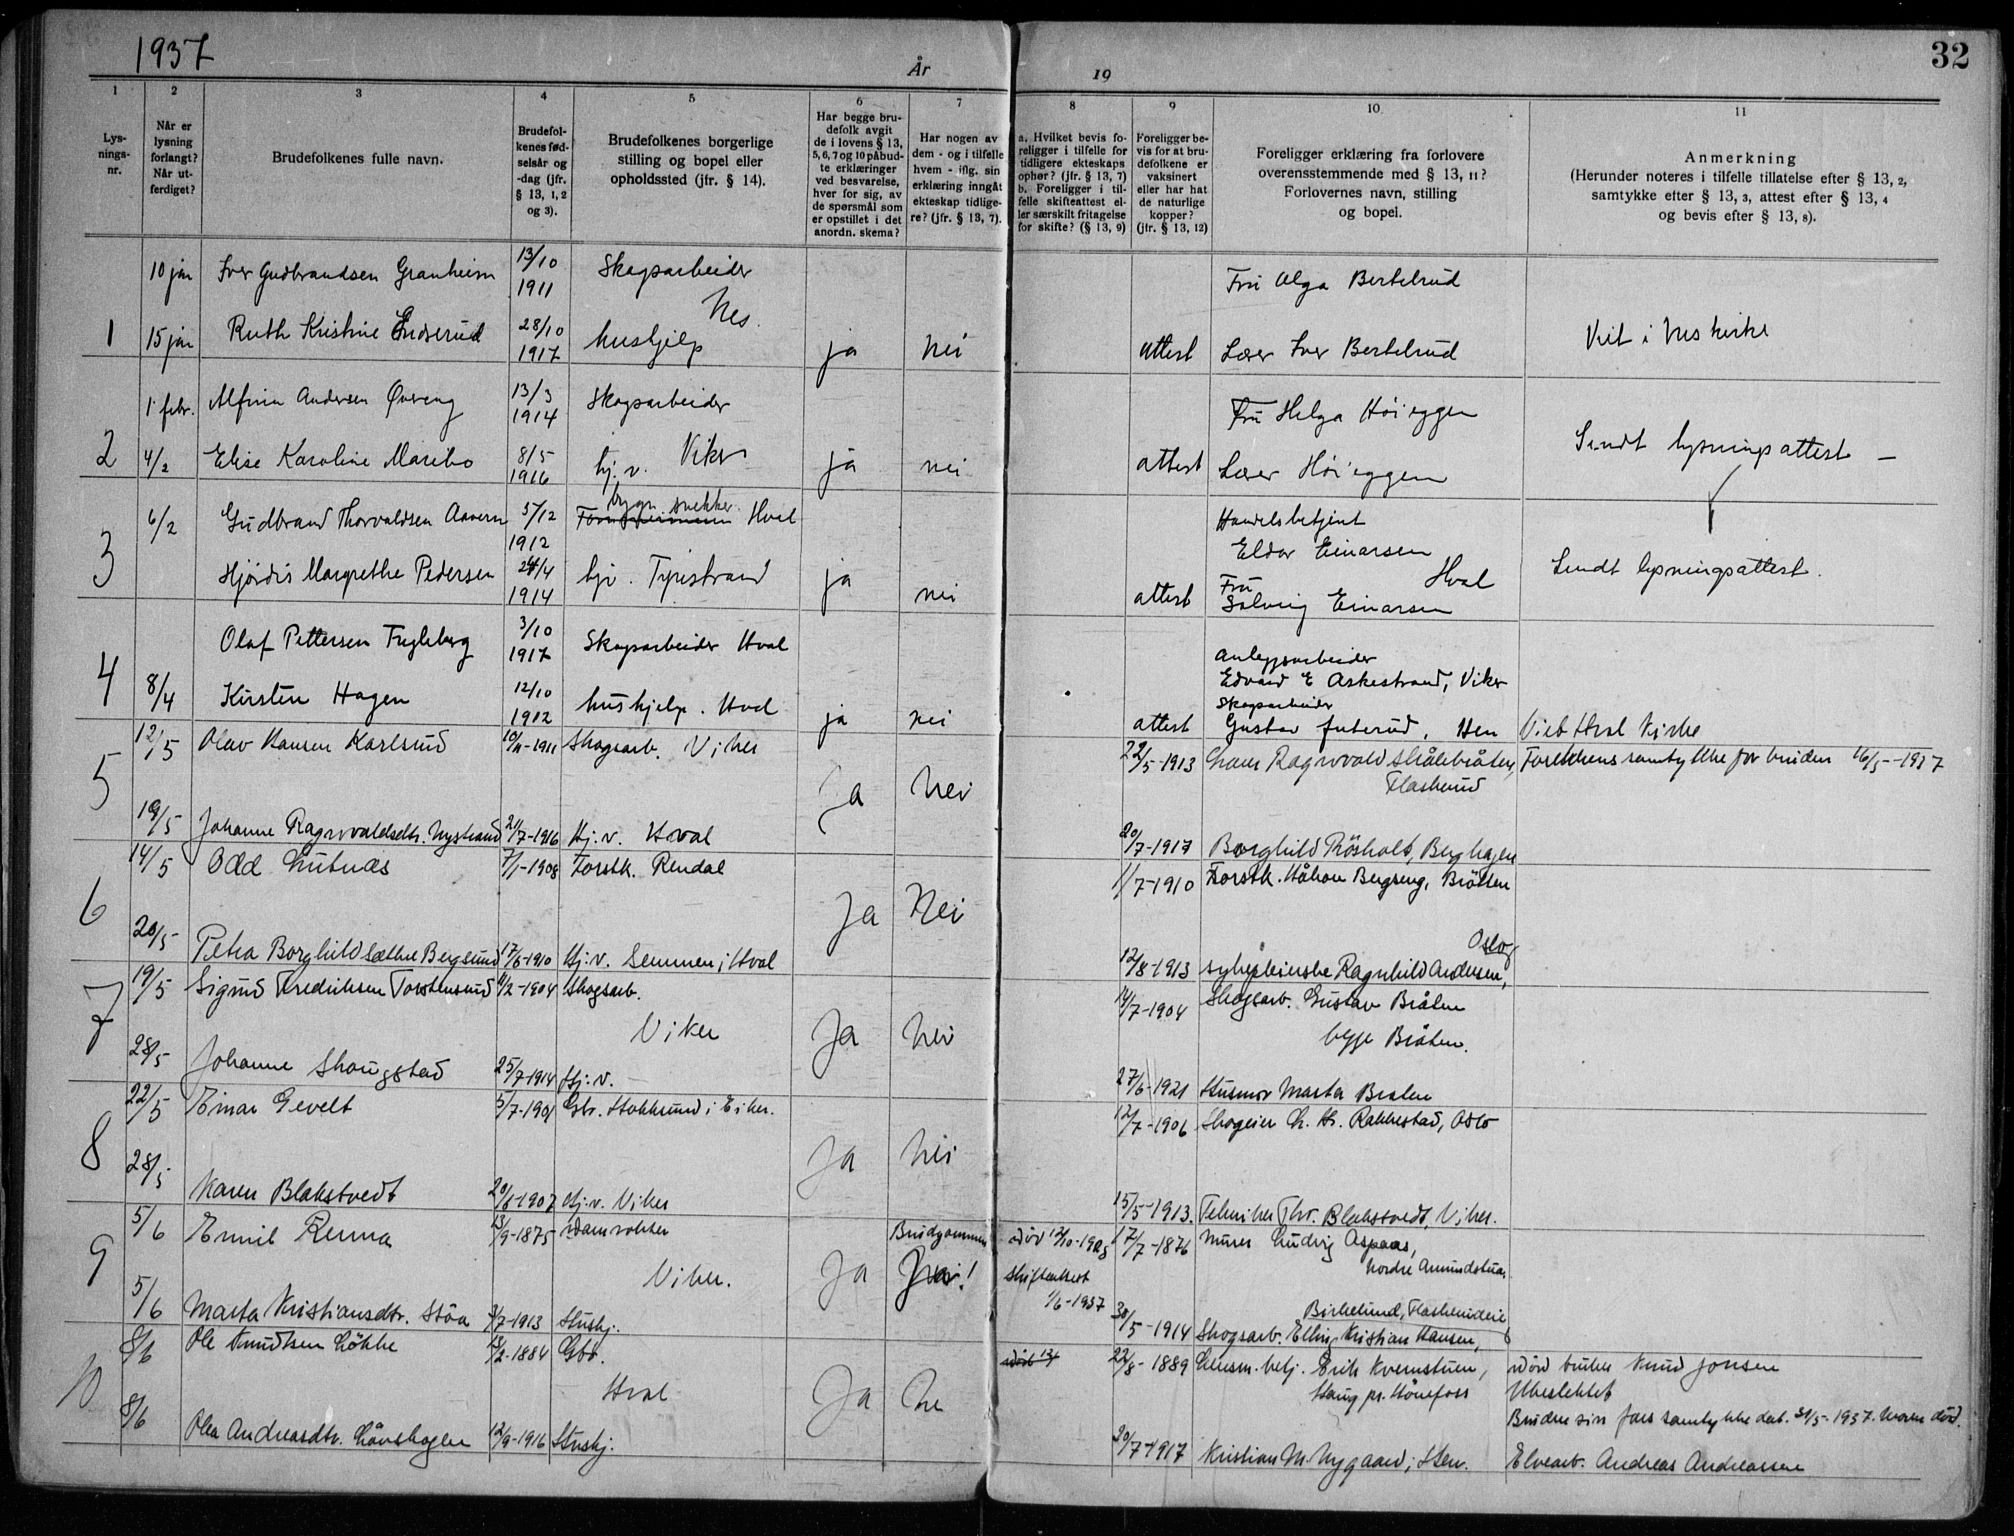 1937
År
19
32
1
2
3
4
5
6
7
8
9
10
11
Lys-
nings-
nr.
Når er
lysning
forlangt?
Når ut-
ferdiget?
Brudefolkenes fulle navn.
Brudefol-
kenes fød-
selsår og
-dag (jfr.
§ 13, 1, 2
og 3).
Brudefolkenes borgerlige
stilling og bopel eller
opholdssted (jfr. § 14).
Har begge bru-
defolk avgit
de i lovens § 13,
5, 6, 7 og 10 påbud-
te erklæringer
ved besvarelse,
hver for sig, av
de spørsmål som
er opstillet i det
anordn. skema?
Har nogen av
dem - og i tilfelle
hvem - iflg. sin
erklæring inngåt
ekteskap tidlige-
re? (jfr. § 13, 7).
a. Hvilket bevis fo-
religger i tilfelle for
tidligere ekteskaps
ophør? (jfr. § 13, 7)
b. Foreligger i til-
felle skifteattest el-
ler særskilt fritagelse
for skifte? (§ 13, 9)
Foreligger be-
vis for at bru-
defolkene er
vaksinert
eller har hat
de naturlige
kopper?
(jfr. § 13, 12)
Foreligger erklæring fra forlovere
overensstemmende med § 13, 11?
Forlovernes navn, stilling
og bopel.
Anmerkning
(Herunder noteres i tilfelle tillatelse efter § 13, 2,
samtykke efter § 13, 3, attest efter § 13, 4
og bevis efter § 13, 8).
10 jan Iver Gudbrandsen Granheim 13/10 1911 Skogsarbeider Fru Olga Bertelrud
Nes.
1 15 jan Ruth Kristine Endserud 28/10 1917 hushjelp ja nei attest Lærer Iver Bertelrud Viet i Nes kirke
1 febr. Alfinn Andersen Øvereng 13/3 1914 Skogsarbeider Fru Helga Høieggen
2 4/2 Elise Karoline Maribo 8/5 1916 hj. v. Viker ja nei attest Lærer Høieggen Sendt lysningsattest –
6/2 Gudbrand Thorvaldsen 5/12 1912 Hval Handelsbetjent
Eldor Einarsen
3 Hjördis Margrethe Pedersen 24/4 1914 hjv. Tyristrand ja nei attest Fru Solveig Einarsen Hval Sendt lysningsattest.
Olaf Pettersen Fugleberg 3/10 1917 Skogsarbeider Hval Anleggsarbeider
Edvard E Askestrand, Viker
4 8/4 Kirsten Hagen 12/10 1912 hushjelp. Hval ja nei attest Skogsarbeider
Gustav Juterud, Hen Viet Hval Kirke
12/5 Olav Hansen Karlsrud 10/11-1911 Skogsarb. Viker 22/5-1913 Ragnvald
Flaskerud Foreldrens samtykke for bruden 16/5-1937
5 Ja Nei
19/5 Johanne Ragnvaldsdtr. Nystrand 21/7-1916 Hj. v. Hval 20/7-1917 Borghild Rösholt, Berghagen
14/5 Odd Lutnæs 7/1-1908 Forstk. Rendal 1/7-1910 Forstk. Håkon Bergseng, Bråten
6 Ja Nei
20/5 Petra Borghild Sæthre Bergsund 17/6-1910 Hj. v. Semmen i Hval 12/8-1913 sykepleierske Ragnhild Andersen, Oslo
19/5 Sigurd Fredriksen Torstensrud 11/2-1904 Skogsarb. 14/7-1904 Skogsarb. Gustav Bråten
7 Viker Ja Nei begge Bråten.
28/5 Johanne Skougstad 25/7-1914 Hj. v. 27/6-1921 Husmor Marta Bråten
22/5 Einar Gevelt 5/7-1901 Gbr. Hokksund i Eiker. 12/7-1906 Skogeier Rakkestad, Oslo
8 Ja Nei
28/5 Karen Blakstvedt 20/6-1907 Hj. v. Viker 15/5-1913. Tekniker Thv. Blakstvedt, Viker.
5/6 Emil Renna 13/9-1875 Damvokter Brudgommen død 12/10-1908 17/7-1876 Murer Ludvig Aspaas,
Nordre Amundstua.
9 Viker. Ja Ja! Skifteattest
1/6-1937
5/6 Marta Kristiansdtr. Stöa 3/7-1913 Hushj. 30/5-1914 Skogsarb. Elling Kristian Hansen,
Birkelund, Flaskerudeie
8/6 Ole Knudtsen Løkke 13/2-1884 Gbr. 22/8-1889 Lensm. betj. Erik Kvernstuen, Død bruker Knud Jonsen
10 Hval Ja Ne Haug pr. Hönefoss Ubeslektet
Brudens fars samtykke dat. 31/5-1937. Moren död.
8/6 Olea Andreasdtr. Lövshagen 12/9-1916 Hushj. 30/7-1917 Kristian M. Nygaard, Hen. Elvearb. Andreas Andreassen